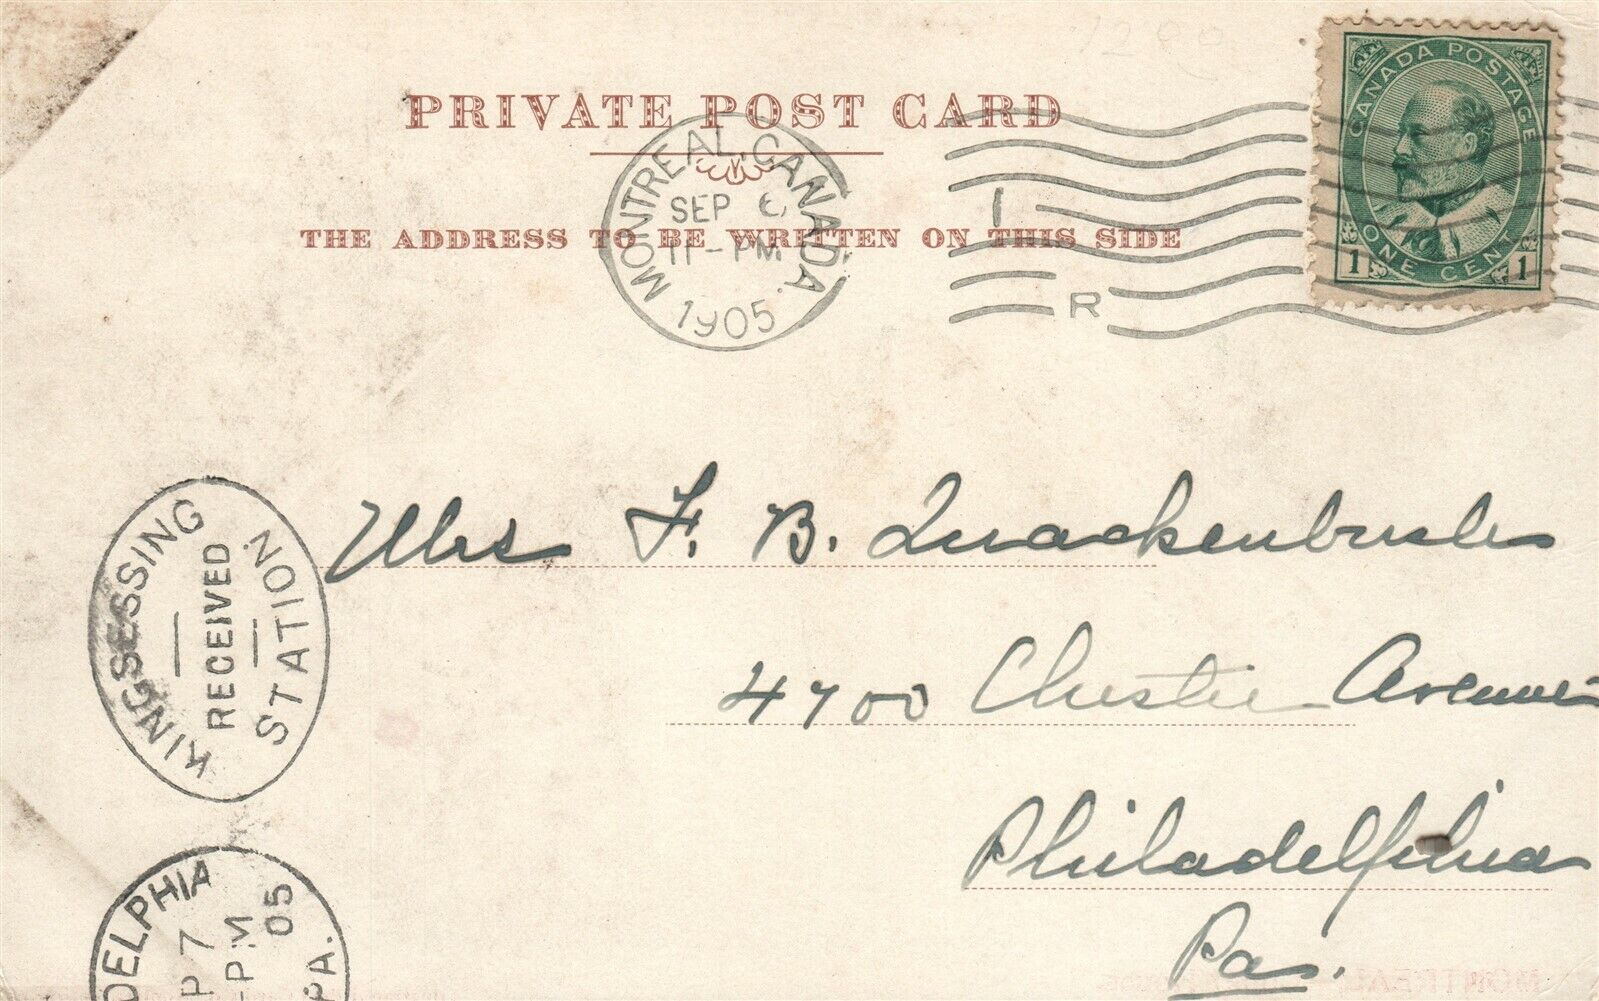 PRIVATE POST CARD
THE ADDRESS TO BE WRITTEN ON THIS SIDE
MONTREAL, CANADA.
SEP 6
11-PM
1905
I
R
CANADA POSTAGE
ONE CENT
1 1
KINGSESSING
RECEIVED
STATION.
Mrs F. B. Quackenbush
4700 Chester Avenue
Philadelphia
Pa.
DELPHIA
P 7
-PM
05
PA.
MONTREAL